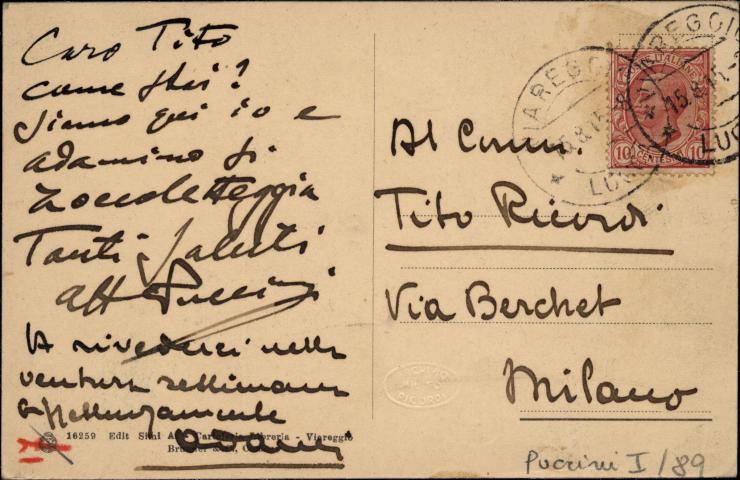 Caro Tito
come stai?
Siamo qui io e
Adamino si
zoccoletteggia
Tanti saluti
aff Puccini
A rivederci nella
ventura settimana
affettuosamente
Adami
16259 Edit Simi Cartoleria Libreria - Viareggio
VIAREGGIO
15.8.15
LUCCA
VIAREGGIO
15.8.15
LUCCA
10 CENTES 10
Al Comm.
Tito Ricordi
Via Berchet
Milano
ARCHIVIO
RICORDI
Puccini I/89